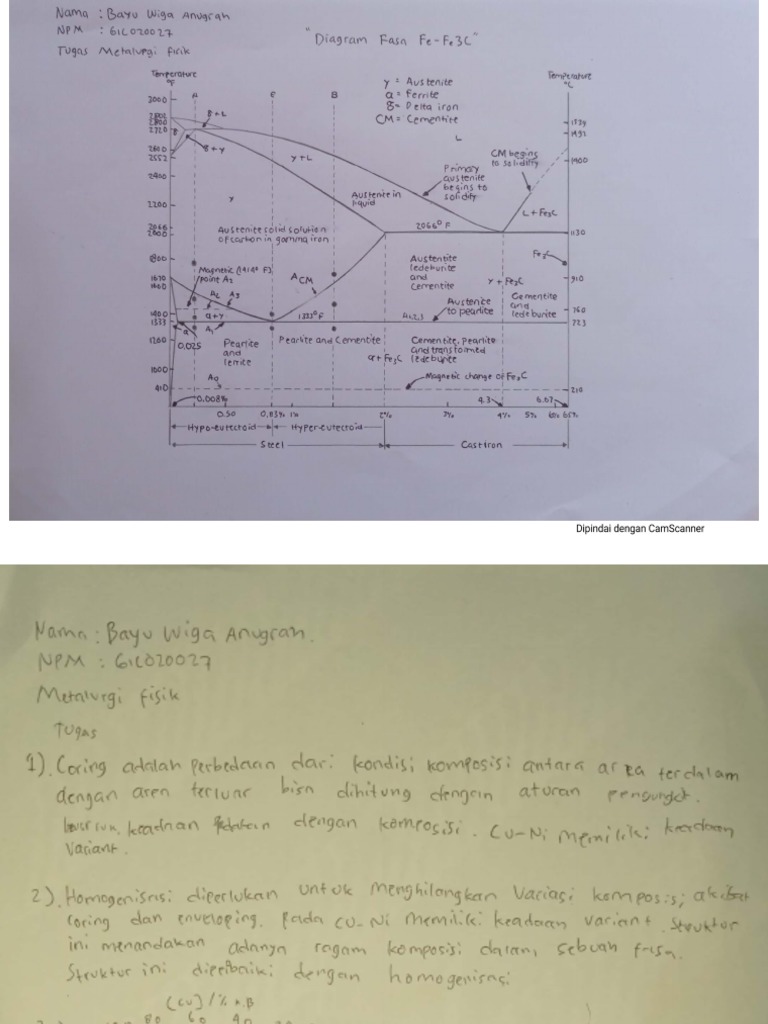 Nama : Bayu Wiga Anugrah
NPM : 61L020027
Tugas Metalurgi fisik
"Diagram Fasa Fe-Fe3C"
Temperature
°F
Temperature
°C
γ = Austenite
α = Ferrite
δ = Delta iron
CM = Cementite
A
B
3000
2720
2600
2552
2400
2200
2066
2000
1800
1670
1400
1333
1200
1000
410
1539
1492
1400
1130
910
760
723
210
δ + L
δ + γ
γ + L
L
γ
Austenite in
liquid
Primary
austenite
begins to
solidify
CM begins
to solidify
L + Fe3C
2066° F
Austenite solid solution
of carbon in gamma iron
Magnetic (1414° F)
point A2
A2
A3
ACM
α + γ
α
A1
0.025
1333° F
Austentite
ledeburite
and
Cementite
γ + Fe3C
Fe3C
Austenice
to pearlite
Cementite
and
ledeburite
A1,2,3
Pearlite
and
ferrite
Pearlite and Cementite
α + Fe3C
Cementite, pearlite
and transformed
ledeburite
A0
Magnetic change of Fe3C
0.008%
0.50
0,83%
1%
2%
3%
4.3
4%
5%
6.67
6%
6.5%
Hypo-eutectoid
Hyper-eutectoid
Steel
Cast iron
Dipindai dengan CamScanner
Nama : Bayu Wiga Anugrah.
NPM : 61L020027
Metalurgi fisik
Tugas
1). Coring adalah perbedaan dari kondisi komposisi antara area terdalam
dengan area terluar bisa dihitung dengan aturan pengungkit.
keadaan dengan komposisi. Cu-Ni memiliki keadaan
Variant.
2). Homogenisasi diperlukan untuk menghilangkan Variasi komposisi akibat
coring dan enveloping. Pada Cu-Ni memiliki keadaan variant. Struktur
ini menandakan adanya ragam komposisi dalam sebuah frasa.
Struktur ini diperbaiki dengan homogenisasi
(Cu) / % A.B
80 60 40